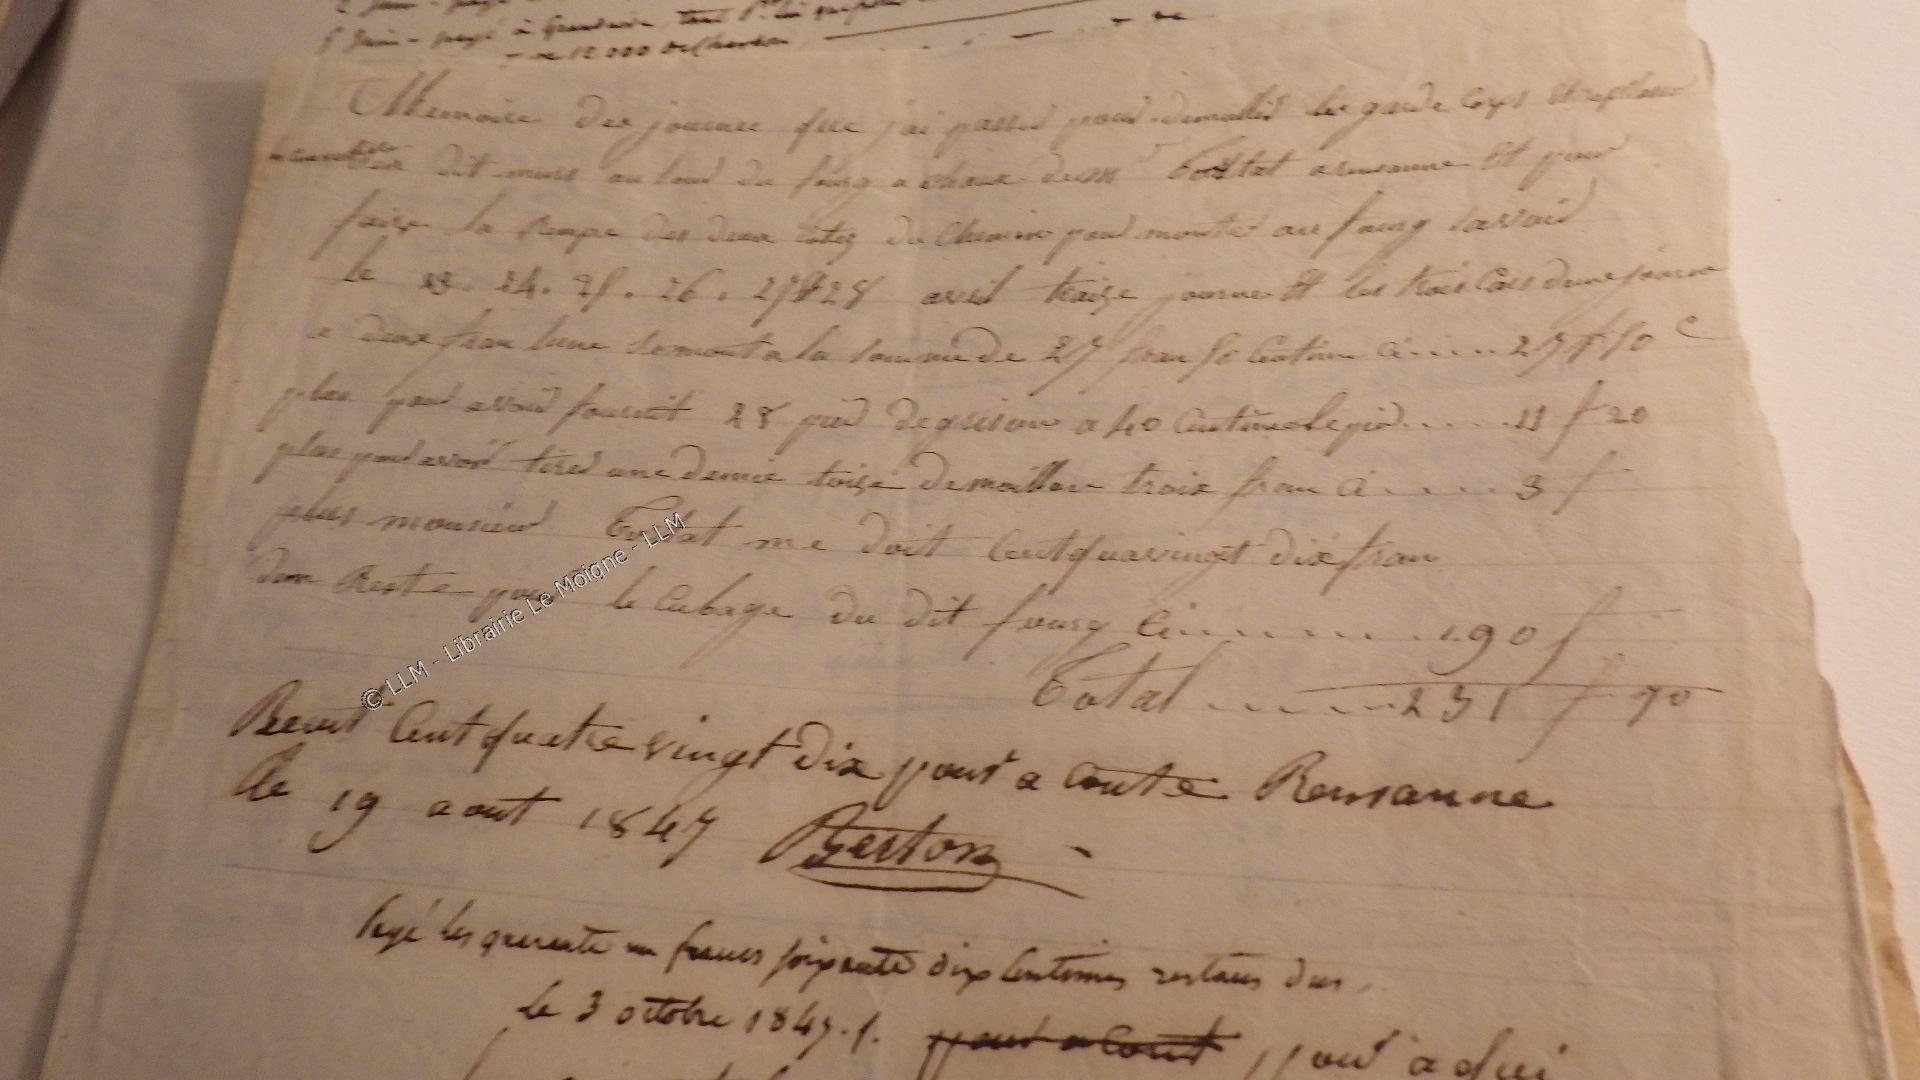 2 juin - payé
5 juin - payé à
de 12.000 de Charbon
Memoire des journee que j'ai passer pour demollir les garde Corps Et replasser
dit murs au tour du fourg a chaux de mr Tostat a remsanne Et pour
faire la Rempe des deux Cotez du Chemin pour monter au fourg savoir
le 23. 24. 25. 26. 27 & 28 avril traize journe Et les trois Cars dune journe
a deux fran lune se monta la somme de 27 fran 50 Centime Ci....27 f 50 c
plus pour avoir fournit 28 pied de grison a 40 Centime le pied......11 f 20
plus pour avoir tirer une demie toise de moillon troix fran Ci.....3 f
plus monsieur Tostat me doit Cent quavingt dix fran
dun Reste pour le Cubage du dit fourg Ci........190 f
Total.......231 f 70
Recut Cent quatre vingt dix pour a Conte Remsanne
le 19 aout 1847 Berton
Payé les quarente un francs soixante dix Centimes restans dus.
le 3 octobre 1847. pour a Cont, pour aqui
© LLM - Librairie Le Moigne - LLM